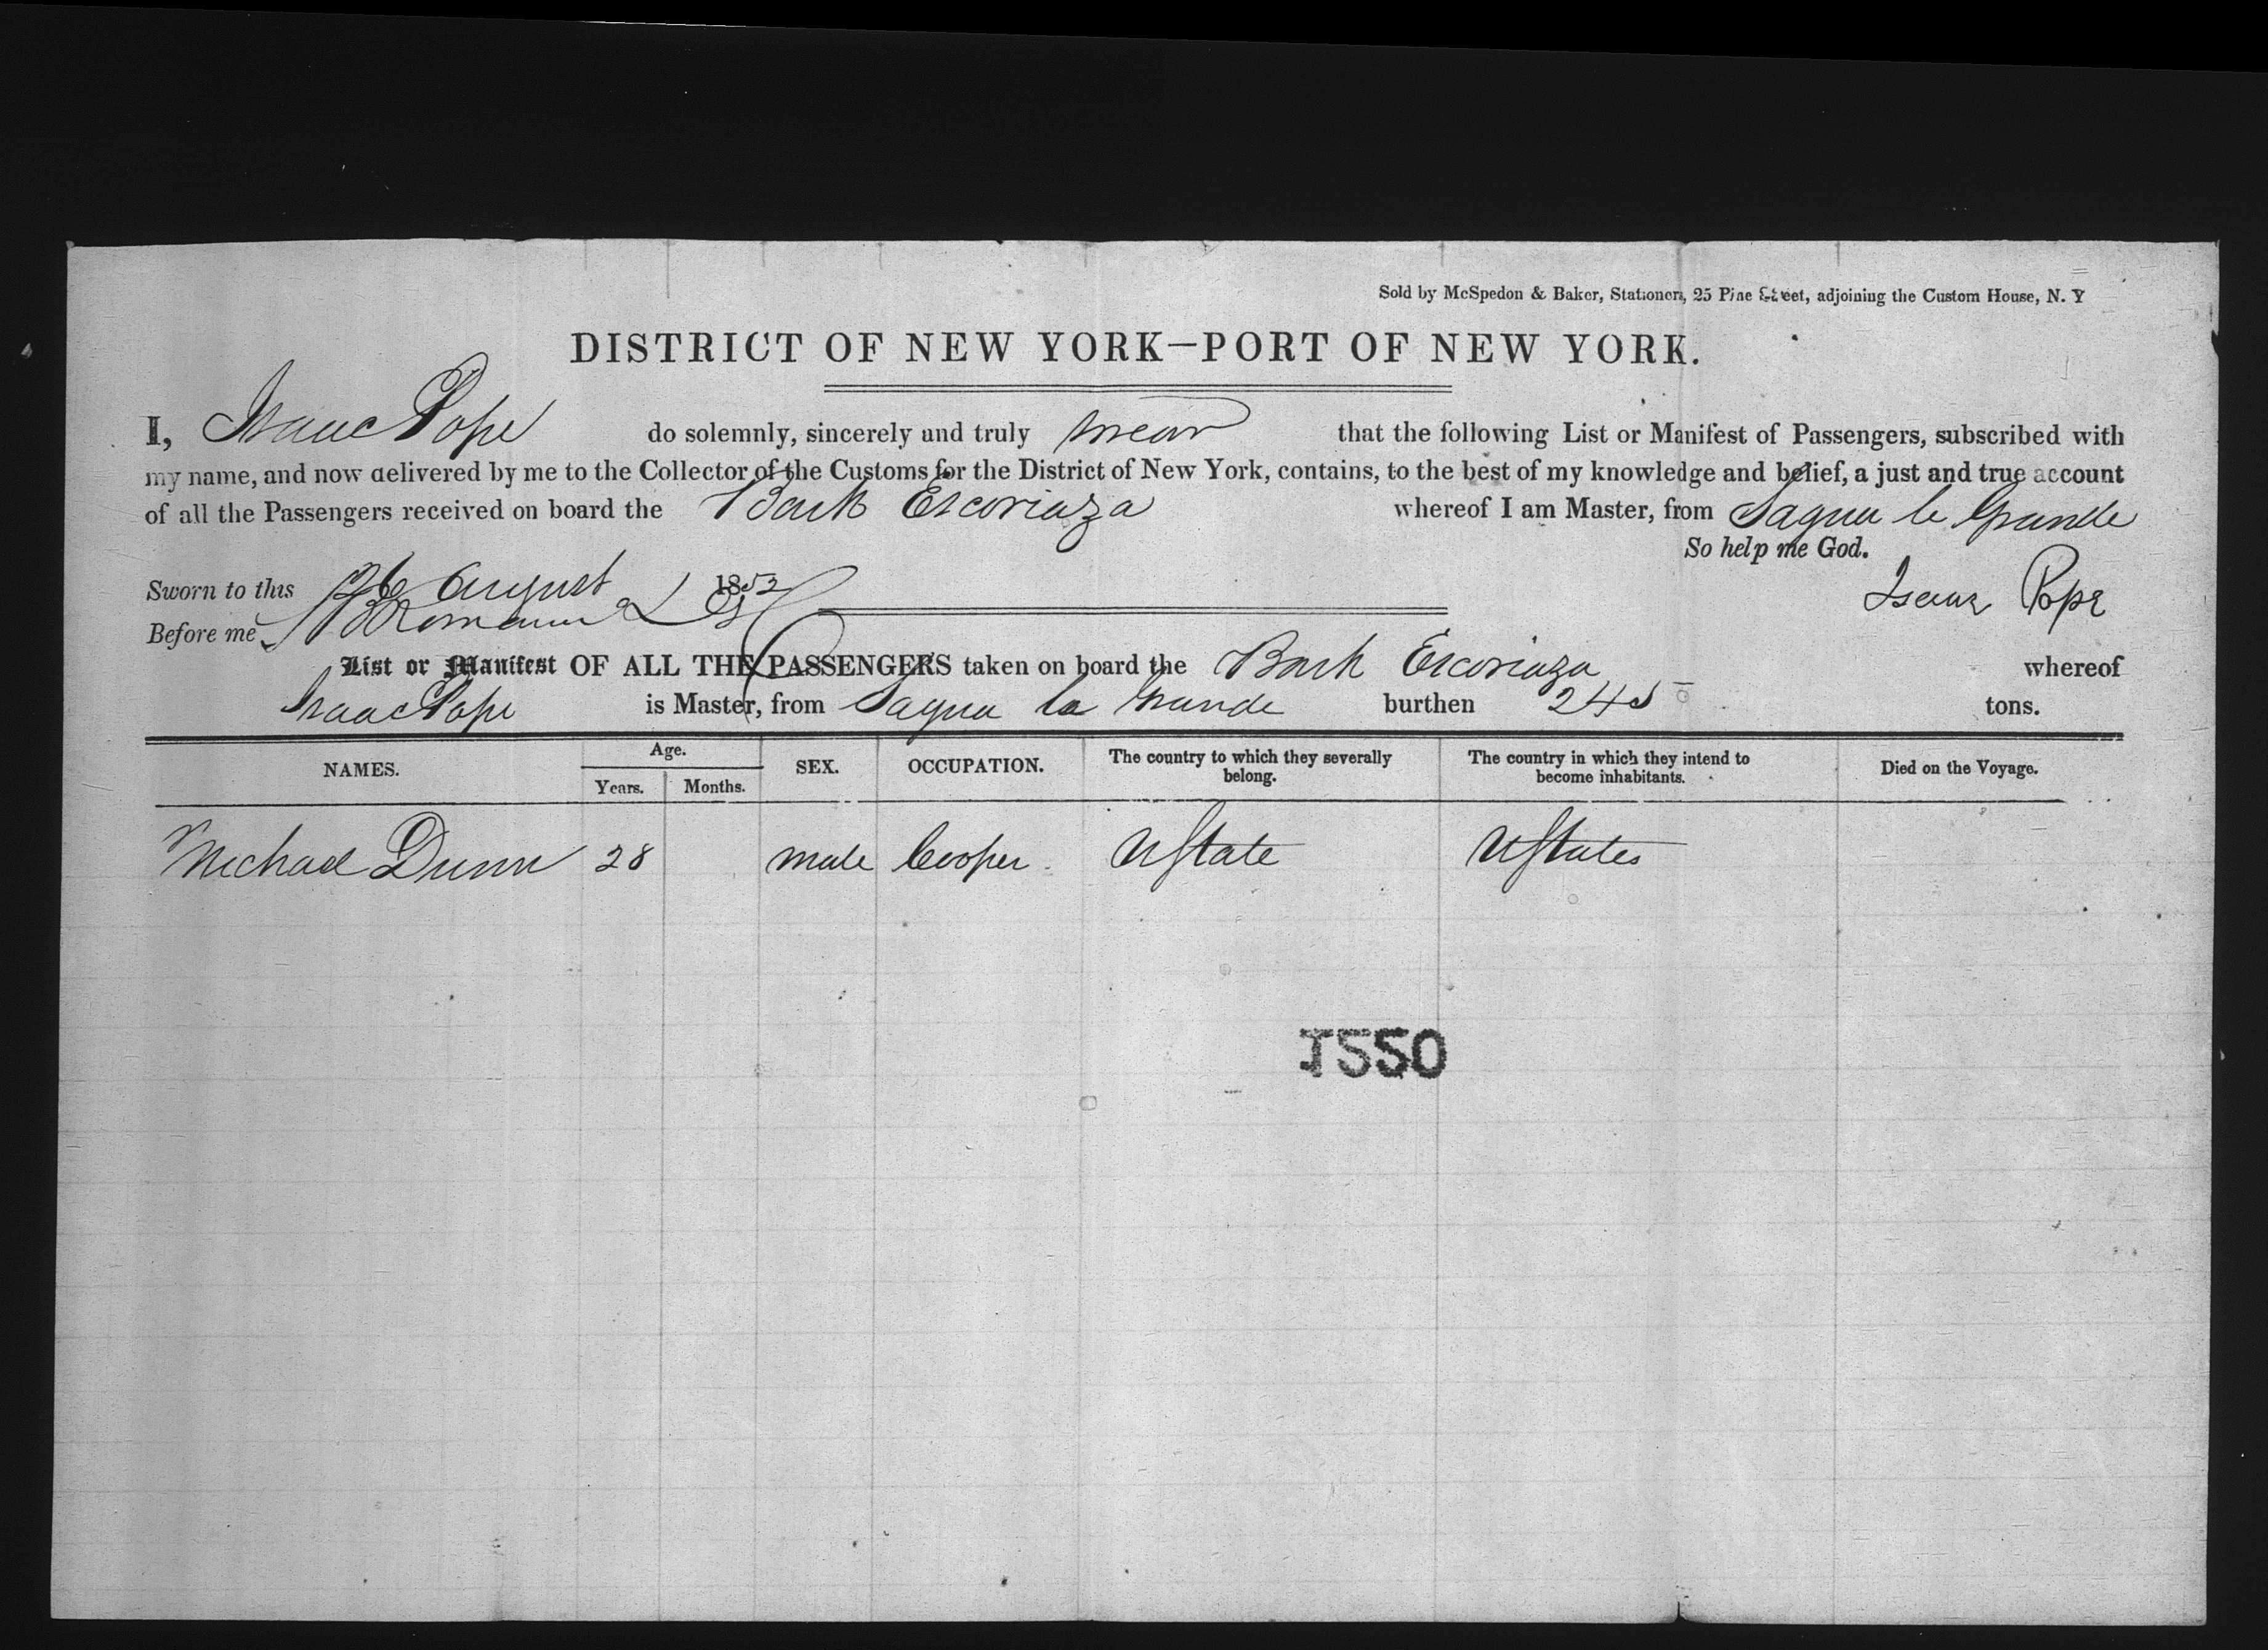 Sold by McSpedon & Baker, Stationers, 25 Pine Street, adjoining the Custom House, N. Y
DISTRICT OF NEW YORK—PORT OF NEW YORK.
I, Isaac Pope do solemnly, sincerely and truly swear that the following List or Manifest of Passengers, subscribed with
my name, and now delivered by me to the Collector of the Customs for the District of New York, contains, to the best of my knowledge and belief, a just and true account
of all the Passengers received on board the Bark Escoriaza whereof I am Master, from Sagua le Grande
So help me God.
Sworn to this 26 August 1852
Isaac Pope
Before me
List or Manifest OF ALL THE PASSENGERS taken on board the Bark Escoriaza whereof
Isaac Pope is Master, from Sagua la Grande burthen 245 tons.
NAMES. Age. Years. Months. SEX. OCCUPATION. The country to which they severally belong. The country in which they intend to become inhabitants. Died on the Voyage.
Michael Dunn 28 male Cooper UState UStates
1550